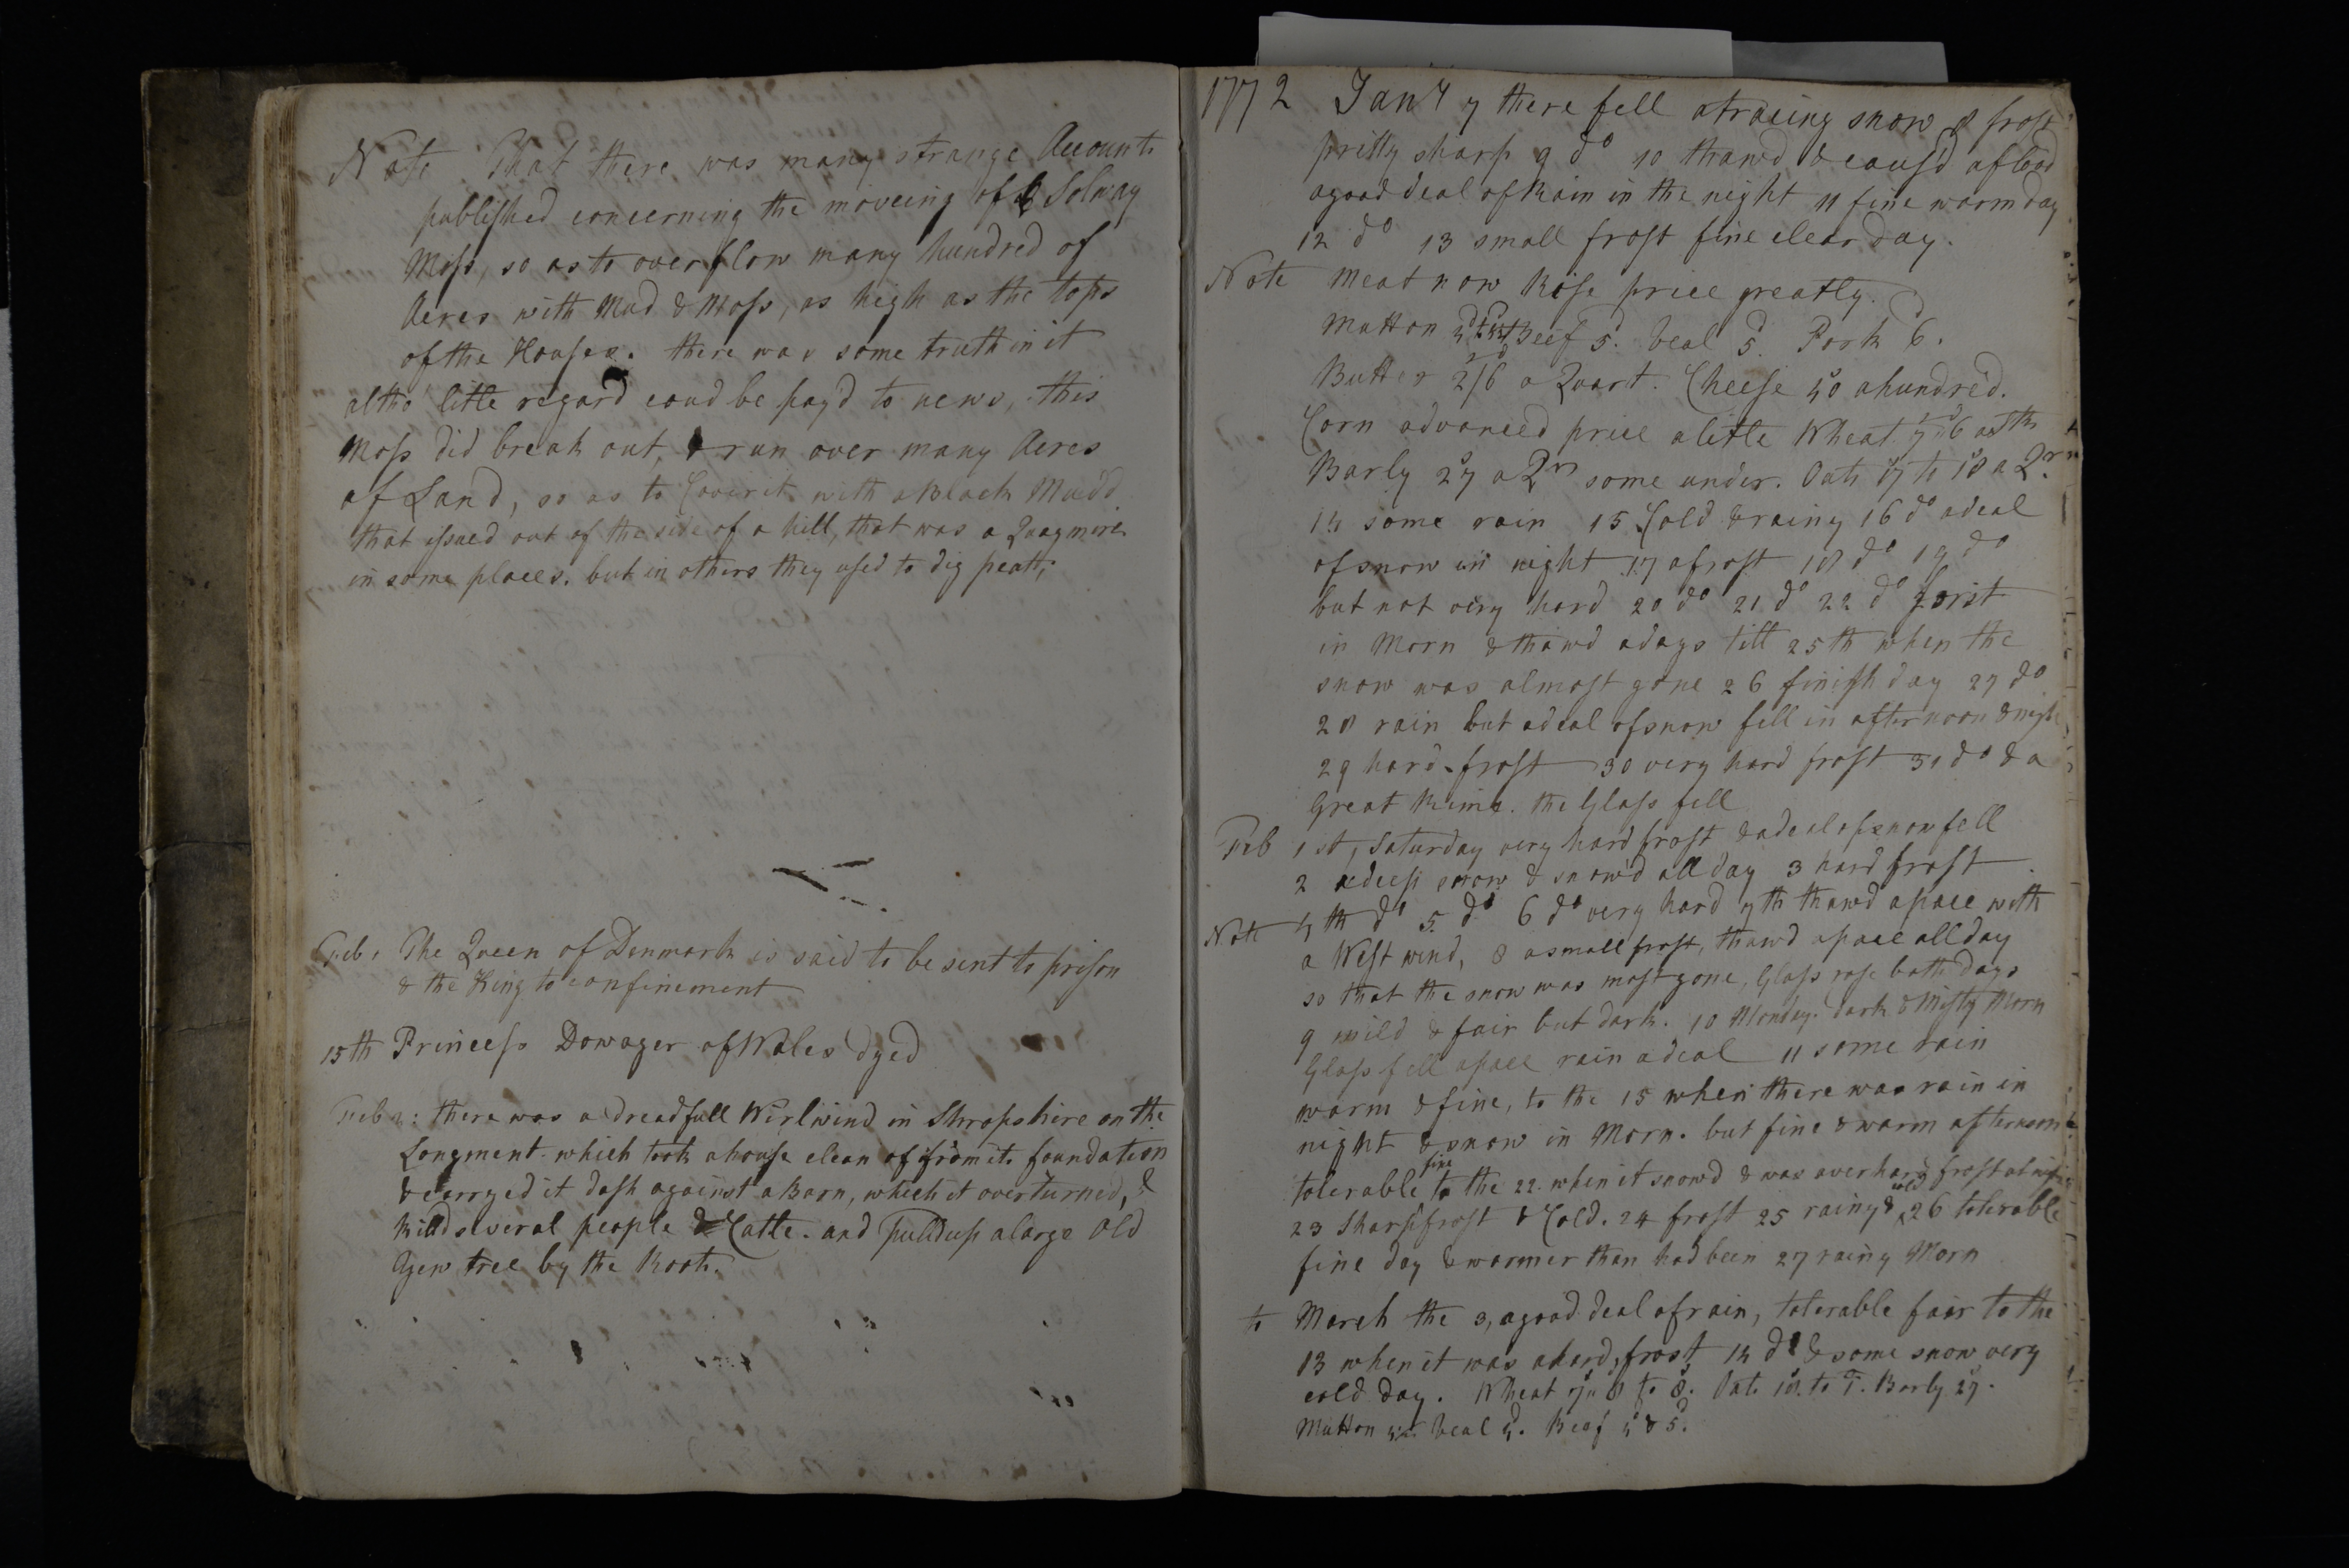 Note That there was many strange Accounts
published concerning the moveing of Solway
Moss, so as to over flow many hundred of
Acres with Mud & Moss, as high as the tops
of the Houses. there was some truth in it
altho' litle regard coud be pay'd to news, this
Moss did break out, & run over many Acres
of Land, so as to Cover it with a Black Mudd
that issued out of the side of a hill, that was a Quagmire
in some places. but in others they used to dig peatt;
Feb: The Queen of Denmark is said to be sent to prison
& the King to confinement
15th Princess Dowager of Wales dyed
Feb : there was a dreadfull Wirlwind in Shropshire on the
Longment which took a house clean of from its foundation
& carryed it dash against a Barn, which it overturned, &
killd several people & Catle. and pulld up a large old
Yew tree by the Roots.
1772 Jany 7 there fell a traceing snow 8 frost
pritty sharp 9 do 10 thaw'd & caus'd a flood
a good deal of Rain in the night 11 fine warm day
12 do 13 small frost fine clear day.
Note Meat now Rise price greatly.
Mutton Beef 5d. Veal 5d. Pork 6d.
Butter 2/6 a Quart. Cheese 40s a hundred.
Corn advanced price a litle Wheat 7s"6d a Sth
Barly 27s a Qrn some under. Oats 17 to 18s a Qrn
14 some rain 15 Cold & rainy 16 do a deal
of snow in night 17 a frost 18 do 19 do
but not very hard 20 do 21 do 22 do forist
in Morn & thawd a days till 25th when the
snow was almost gone 26 finish day 27 do
28 rain but a deal of snow fell in afternoon & night
29 hard frost 30 very hard frost 31 do & a
Great Rime. the Glass fell
Feb 1st, Saturday very hard frost & a deal of snow fell
2 a deep snow & snow'd all day 3 hard frost
Note 4th do 5 do 6 do very hard 7th thawd apace with
a West wind, 8 a small frost, thawd apace all day
so that the snow was most gone, Glass rose both days
9 mild & fair but dark. 10 Monday. dark & Misty Morn
Glass fell apace rain a deal 11 some rain
warm & fine, to the 15 when there was rain in
night & snow in Morn. but fine & warm afternoon
tolerable fine to the 22. when it snowd & was a ver hard frost at night
23 Sharp frost & Cold. 24 frost 25 rainy & cold 26 tolerable
fine day & warmer than had been 27 rainy Morn
to March the 3, a good deal of rain, tolerable fair to the
13 when it was a hard frost 14 do & some snow very
cold day. Wheat 7s"8 to 8s. Oats 18s. to 1L. Barly 27s.
Mutton Veal 4d. Beef 4d & 5d.